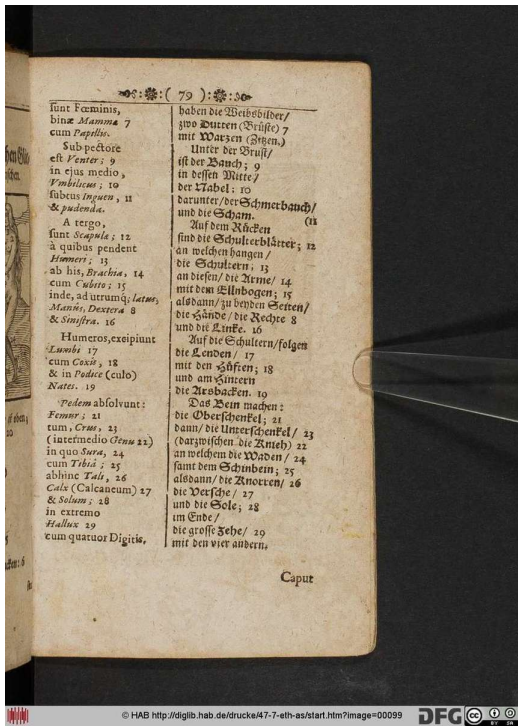 ( 79 )
sunt Fœminis,
binæ Mammæ 7
cum Papillis.
Sub pectore
est Venter; 9
in ejus medio,
Vmbilicus; 10
subtus Inguen, 11
& pudenda.
A tergo,
sunt Scapulæ; 12
à quibus pendent
Humeri; 13
ab his, Brachia, 14
cum Cubito; 15
inde, ad utrumq; latus,
Manus, Dextera 8
& Sinistra. 16
Humeros, exeipiunt
Lumbi 17
cum Coxis, 18
& in Podice (culo)
Nates. 19
Pedem absolvunt:
Femur; 21
tum, Crus, 23
(intermedio Genu 22)
in quo Sura, 24
cum Tibiâ; 25
abhinc Tali, 26
Calx (Calcaneum) 27
& Solum; 28
in extremo
Hallux 29
cum quatuor Digitis.
haben die Weibsbilder/
zwo Dutten (Brüste) 7
mit Warzen (Zitzen.)
Unter der Brust/
ist der Bauch; 9
in dessen Mitte/
der Nabel; 10
darunter/der Schmerbauch/
und die Scham. (11
Auf dem Rücken
sind die Schulterblätter; 12
an welchen hangen/
die Schultern; 13
an diesen/ die Arme/ 14
mit dem Ellnbogen; 15
alsdann/ zu beyden Seiten/
die Hände/ die Rechte 8
und die Linke. 16
Auf die Schultern/folgen
die Lenden/ 17
mit den Hüften; 18
und am Hintern
die Arsbacken. 19
Das Bein machen:
die Oberschenkel; 21
dann/ die Unterschenkel/ 23
(darzwischen die Knieh) 22
an welchem die Waden/ 24
samt dem Schinbein; 25
alsdann/ die Knorren/ 26
die Versche/ 27
und die Sole; 28
im Ende/
die grosse Zehe/ 29
mit den vier andern.
Caput
© HAB http://diglib.hab.de/drucke/47-7-eth-as/start.htm?image=00099
DFG
cc
BY SA